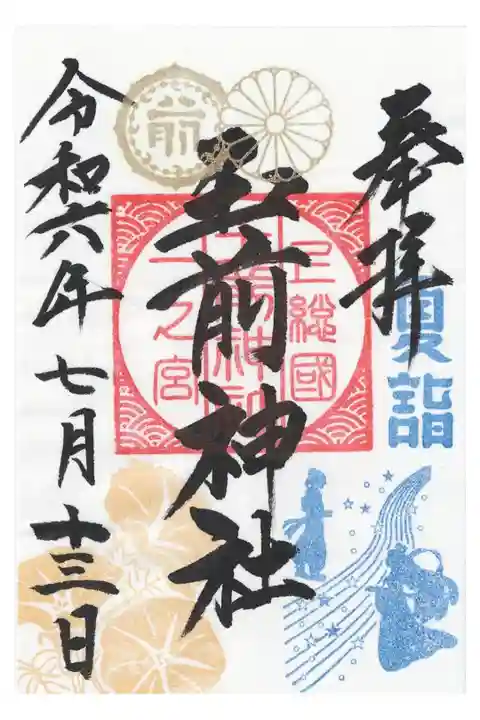 奉拝
夏詣
前
上総國
玉前神社
一之宮
令和六年七月十三日